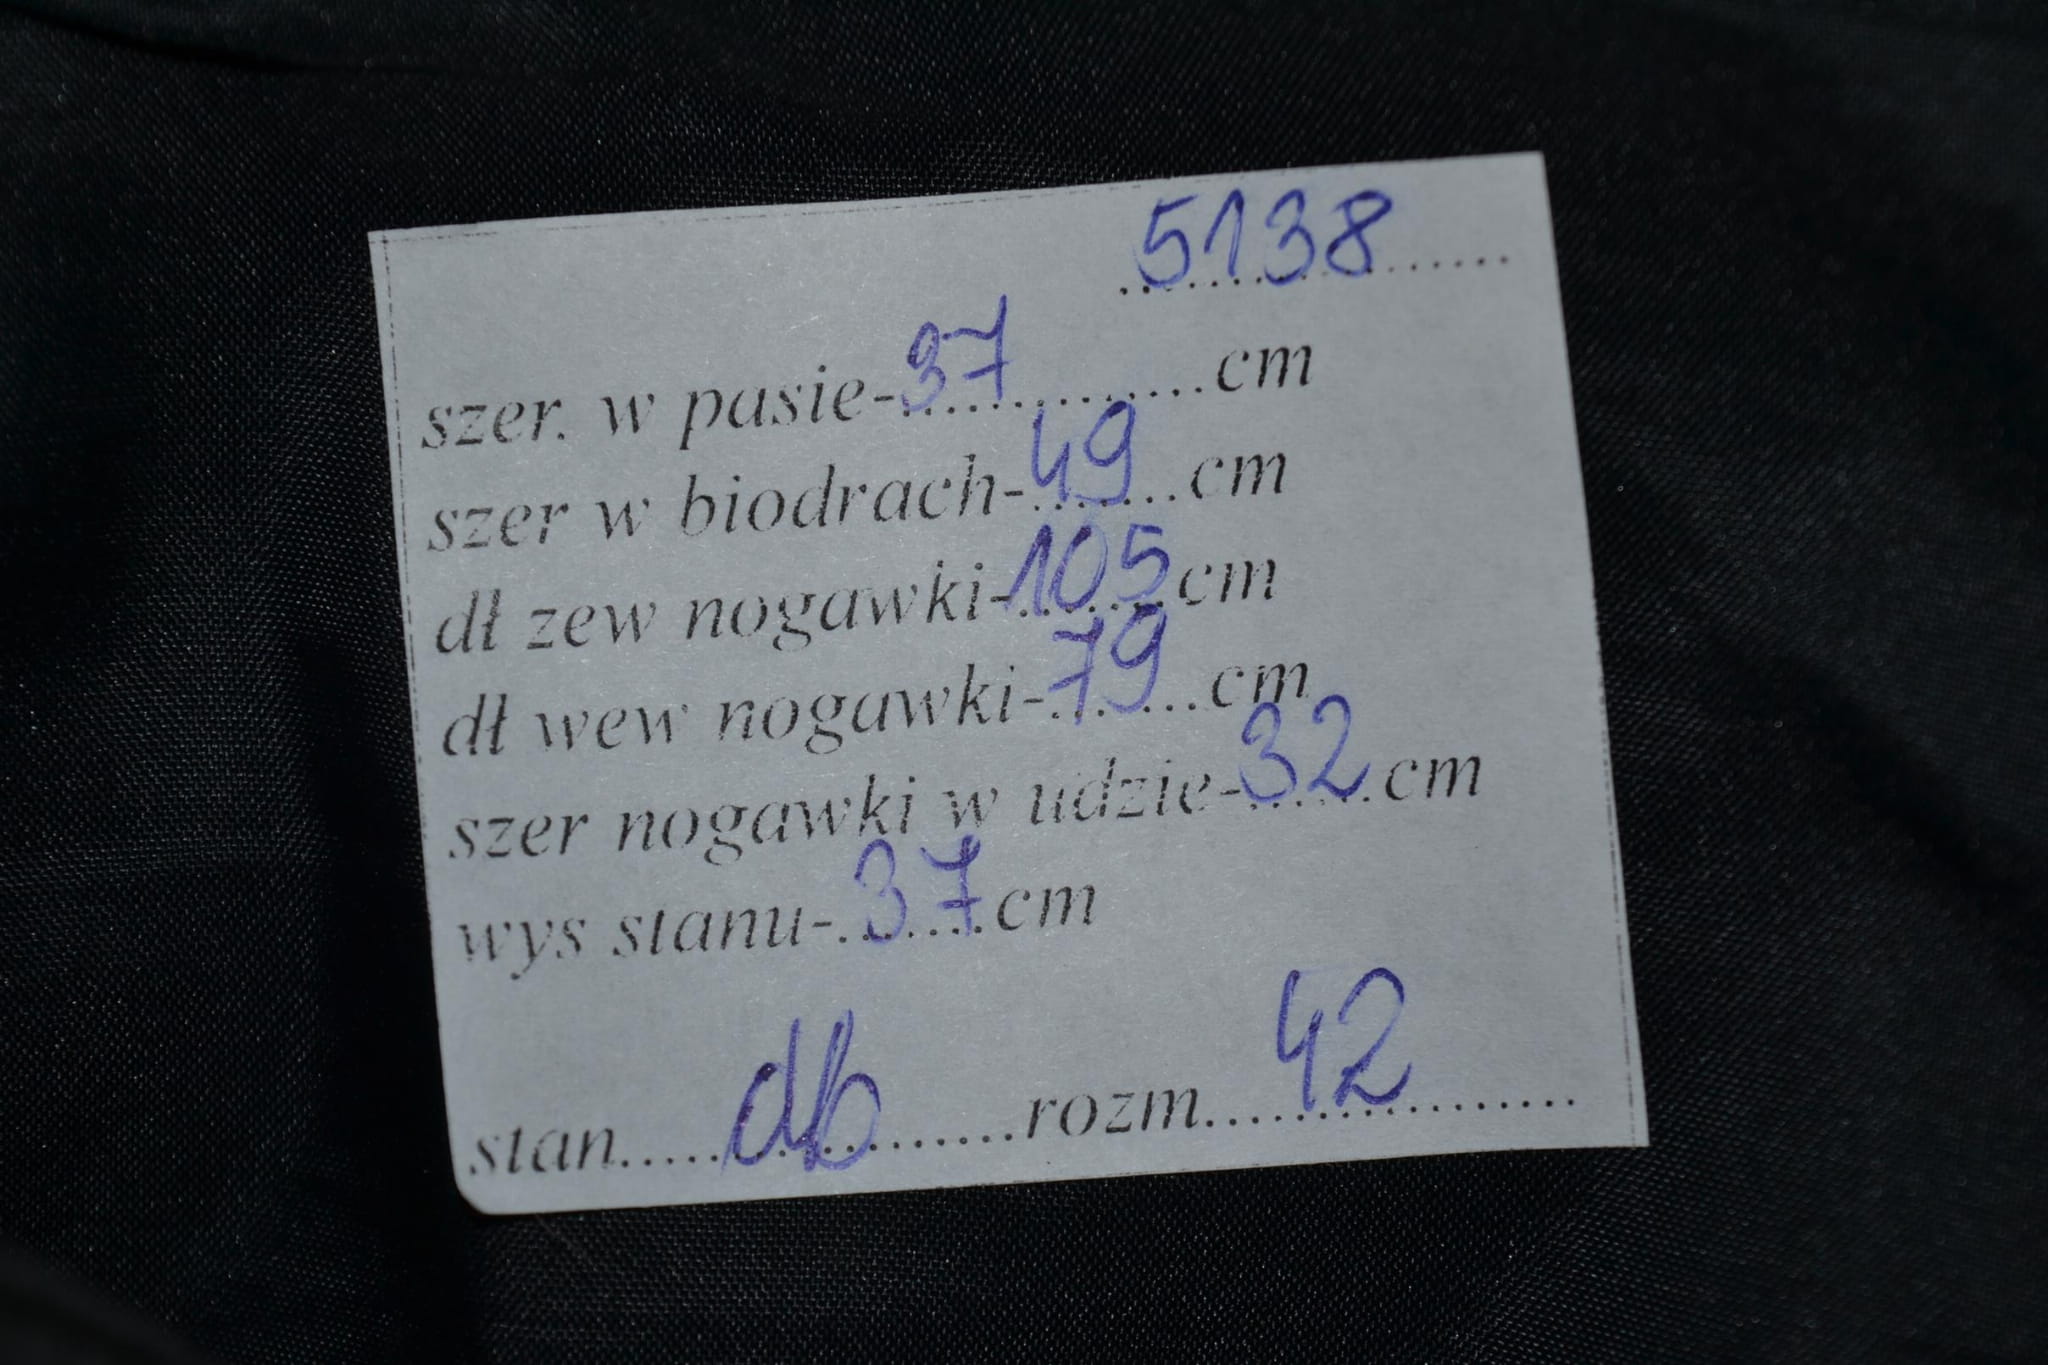 5138
szer. w pasie-37...............cm
szer w biodrach-49.......cm
dł zew nogawki-105.......cm
dł wew nogawki-79.......cm
szer nogawki w udzie-32......cm
wys stanu-.37.......cm
stan.....db.............rozm.....42............